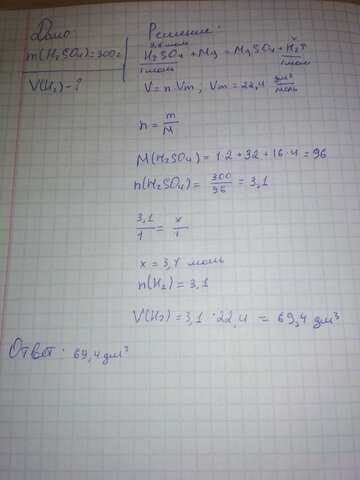 Дано:
Решение:
m(H₂SO₄)=300г
V(H₂)-?
3,1 моль x
H₂SO₄ + Mg = MgSO₄ + H₂↑
1 моль 1 моль
V = n·Vm; Vm = 22,4 дм³/моль
n = m/M
M(H₂SO₄) = 1·2 + 32 + 16·4 = 96
n(H₂SO₄) = 300/96 = 3,1
3,1/1 = x/1
x = 3,1 моль
n(H₂) = 3,1
V(H₂) = 3,1 · 22,4 = 69,4 дм³
Ответ: 69,4 дм³